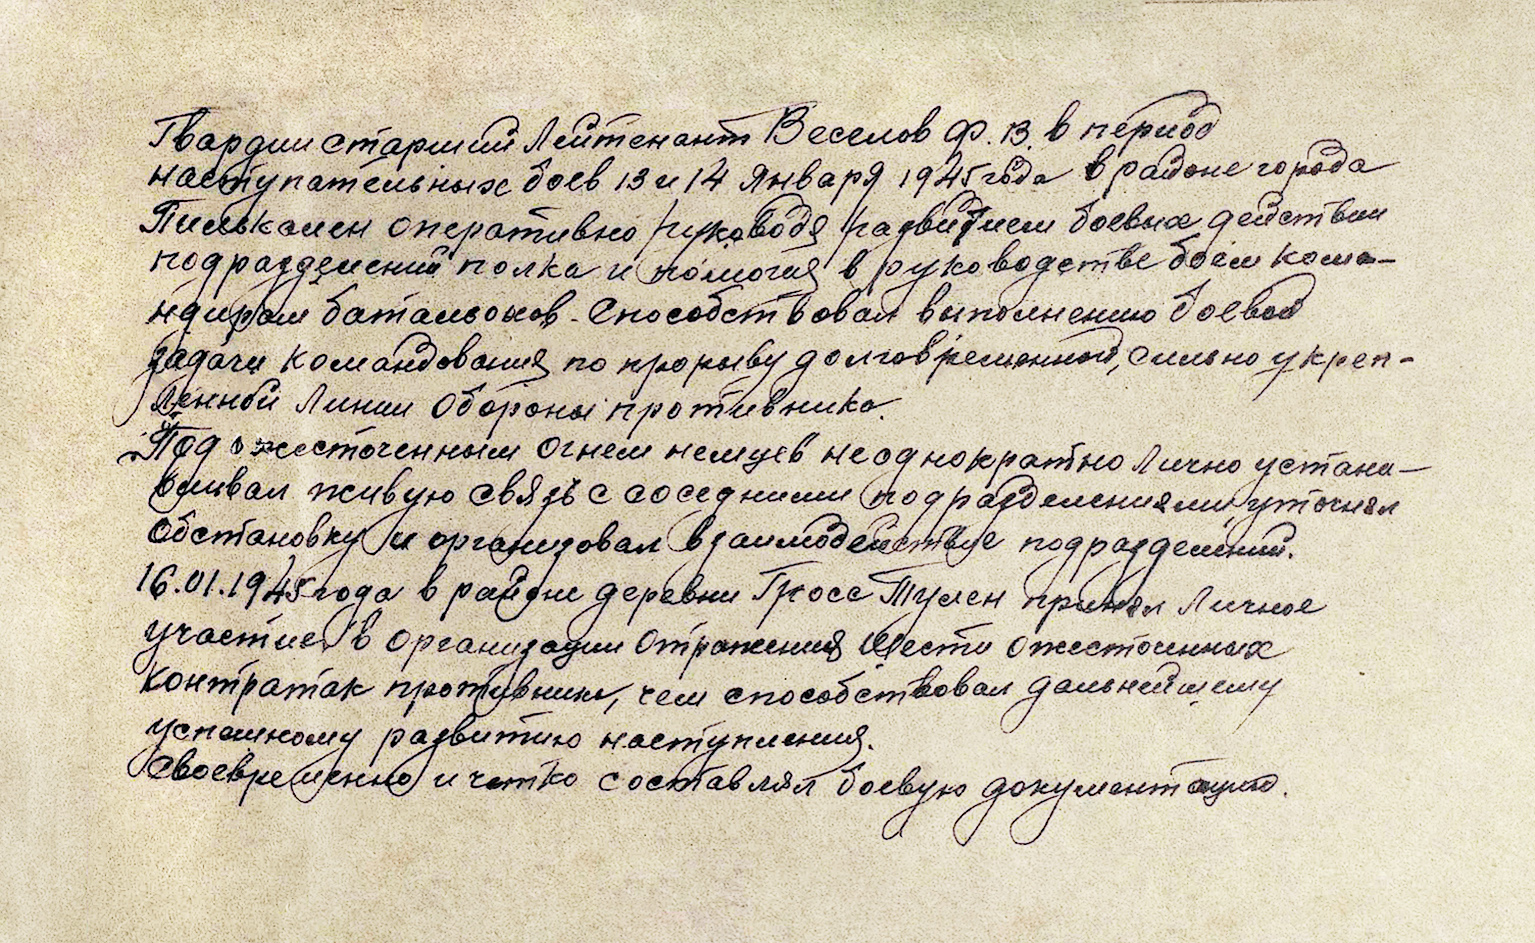 Гвардии старший Лейтенант Веселов Ф. В. в период
наступательных боев 13 и 14 января 1945 года в районе города
Пилькален оперативно руководя развитием боевых действии
подразделений полка и помогая в руководстве боем кома-
ндирам батальонов. Способствовал выполнению боевой
задачи командования по прорыву долговременной, сильно укреп-
ленной Линии Обороны противника.
Под ожесточенным огнем немцев неоднократно лично устана-
вливал живую связь с соседними подразделениями, уточнял
обстановку и организовал взаимодействие подразделений.
16.01.1945 года в районе деревни Гросс Туллен принял Личное
участие в организации отражения Шести ожесточенных
контратак противника, чем способствовал дальнейшему
успешному развитию наступления.
Своевременно и четко составлял боевую документацию.